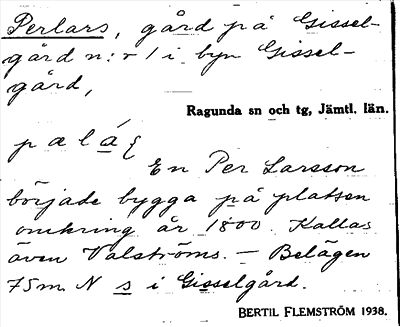 Perlars, gård på Gissel-
gård n:r 1 i byn Gissel-
gård,
Ragunda sn och tg, Jämtl. län.
En Per Larsson
började bygga på platsen
omkring år 1800. Kallas
även Valströms. — Belägen
75 m N s i Gisselgård.
BERTIL FLEMSTRÖM 1938.